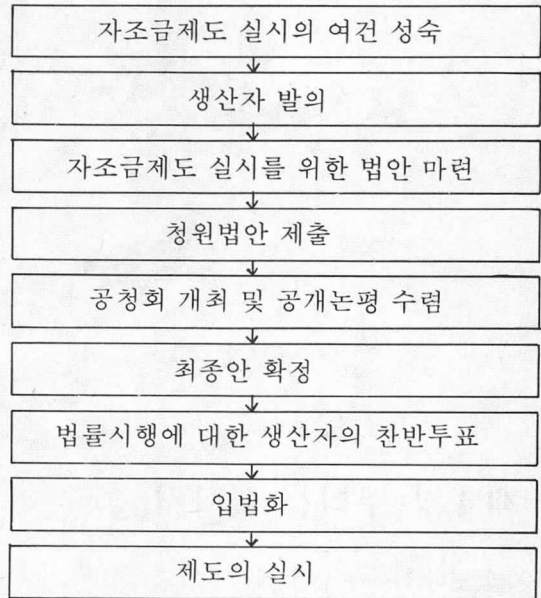 자조금제도 실시의 여건 성숙
생산자 발의
자조금제도 실시를 위한 법안 마련
청원법안 제출
공청회 개최 및 공개논평 수렴
최종안 확정
법률시행에 대한 생산자의 찬반투표
입법화
제도의 실시